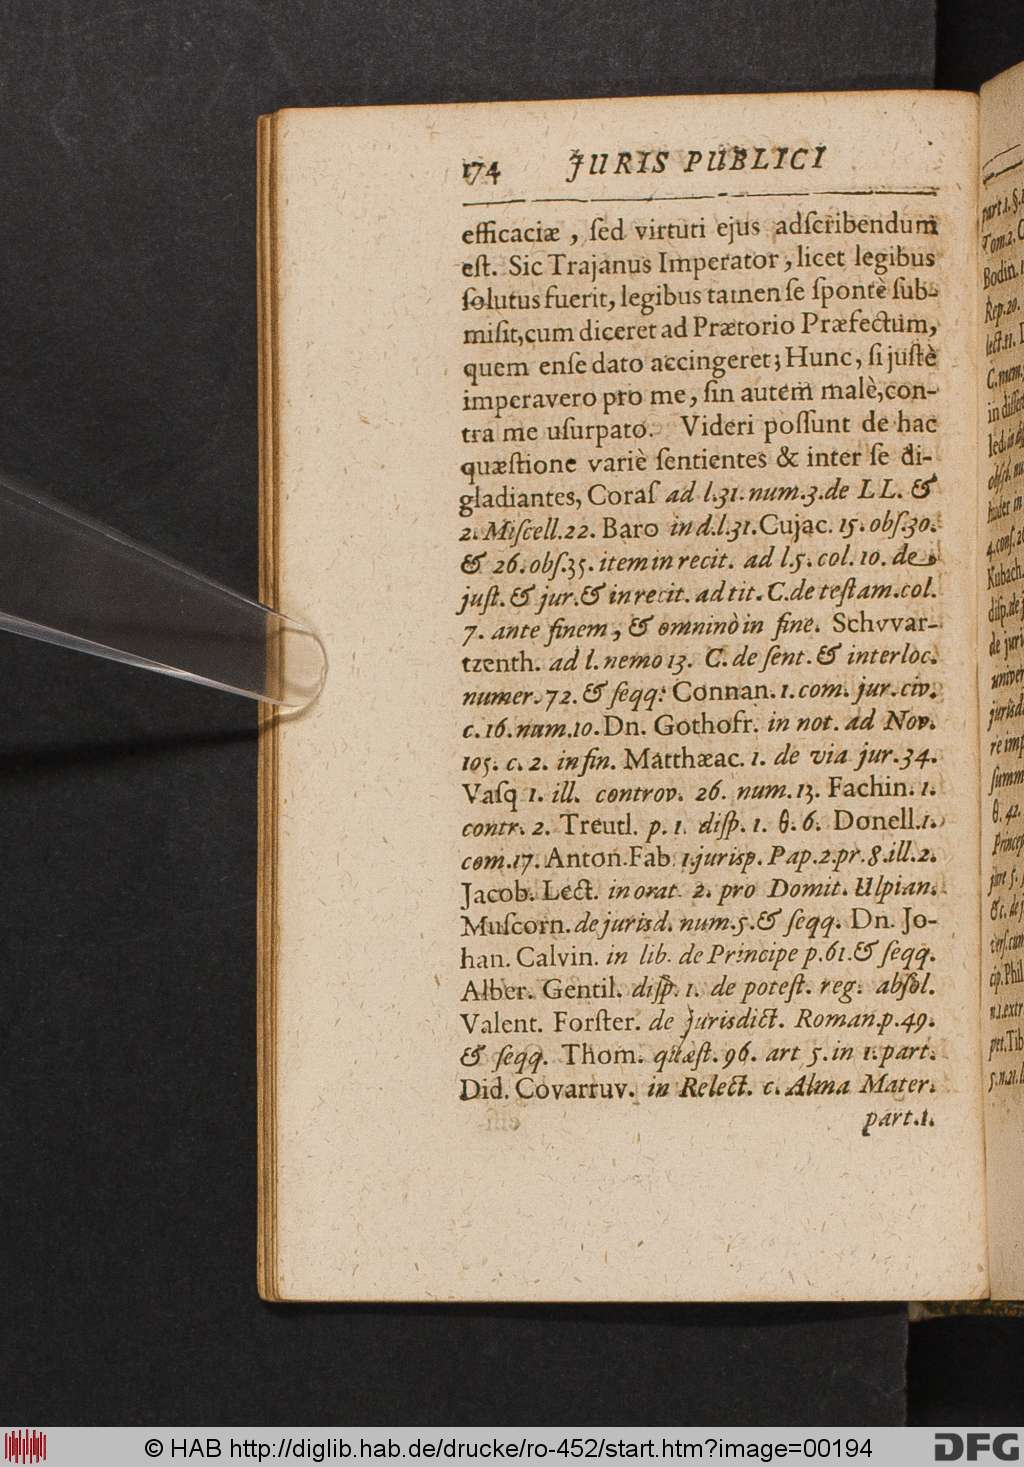 174 JURIS PUBLICI
efficaciæ, ſed virtuti ejus adſcribendum
eſt. Sic Trajanus Imperator, licet legibus
ſolutus fuerit, legibus tamen ſe ſpontè ſub-
miſit, cum diceret ad Prætorio Præfectum,
quem enſe dato accingeret; Hunc, ſi juſtè
imperavero pro me, ſin autem malè, con-
tra me uſurpato. Videri poſſunt de hac
quæſtione variè ſentientes & inter ſe di-
gladiantes, Coraſ ad l.31. num.3. de LL. &
2. Miſcell. 22. Baro in d.l.31. Cujac. 15. obſ.30.
& 26. obſ.35. item in recit. ad l.5. col. 10. de
juſt. & jur. & in recit. ad tit. C. de teſtam. col.
7. ante finem, & omninò in fine. Schvvar-
tzenth. ad l. nemo 13. C. de ſent. & interloc.
numer. 72. & ſeqq: Connan. 1. com. jur. civ.
c. 16. num. 10. Dn. Gothofr. in not. ad Nov.
105. c. 2. in fin. Matthæac. 1. de via jur. 34.
Vaſq 1. ill. controv. 26. num. 13. Fachin. 1.
contr. 2. Treutl. p. 1. diſp. 1. θ. 6. Donell. 1.
com. 17. Anton. Fab 1. jurisp. Pap. 2. pr. 8. ill. 2.
Jacob. Lect. in orat. 2. pro Domit. Ulpian.
Muſcorn. de jurisd. num. 5. & ſeqq. Dn. Jo-
han. Calvin. in lib. de Principe p. 61. & ſeqq.
Alber. Gentil. diſp. 1. de poteſt. reg. abſol.
Valent. Forſter. de jurisdict. Roman. p. 49.
& ſeqq. Thom. quæſt. 96. art 5. in 1. part.
Did. Covarruv. in Relect. c. Alma Mater.
part. 1.
part 1. §.
Tom. 2.
Bodin.
Rep. 20.
lect. 11.
C. mem.
in diſſer
4. conſ.
Kubach.
diſp. de
de juri
univer
jurisd
re imp
ſumm
θ. 42.
Princep
jure 5.
&c. de
cip. Phil
n. 1. extr
pet. Tib
5. n. 21.
© HAB http://diglib.hab.de/drucke/ro-452/start.htm?image=00194
DFG